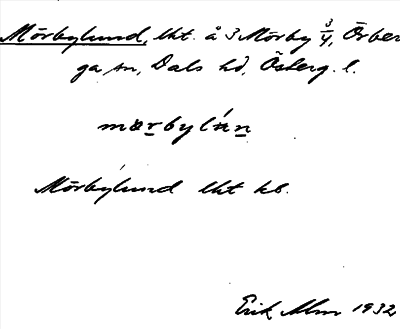 Mörbylund, lht. å 3 Mörby 3/4, Örber
ga sn, Dals hd, Österg. l.
mœrbylán
Mörbylund lht kb.
Erik Alm 1932